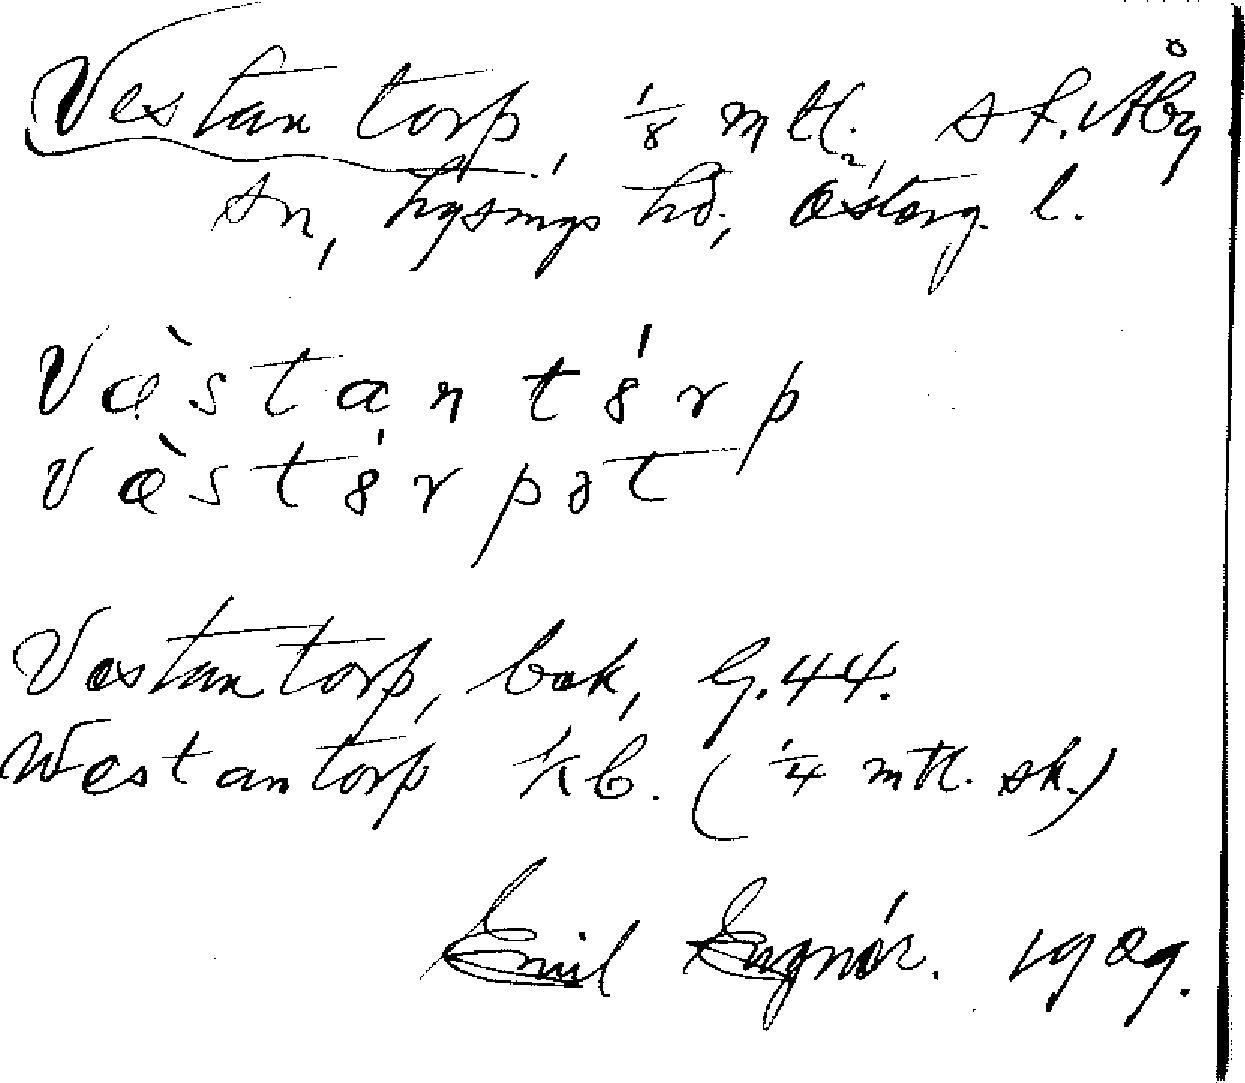 Vestantorp, 1/8 mtl. sk. Åby
sn, hgsings hd., Österg. l.
Væ̀stantȣ́rp
Væ̀stȣ́rpət
Vestantorp, bok, G. 44.
Westantorp kb. (1/4 mtl. sk.)
Emil 1909.